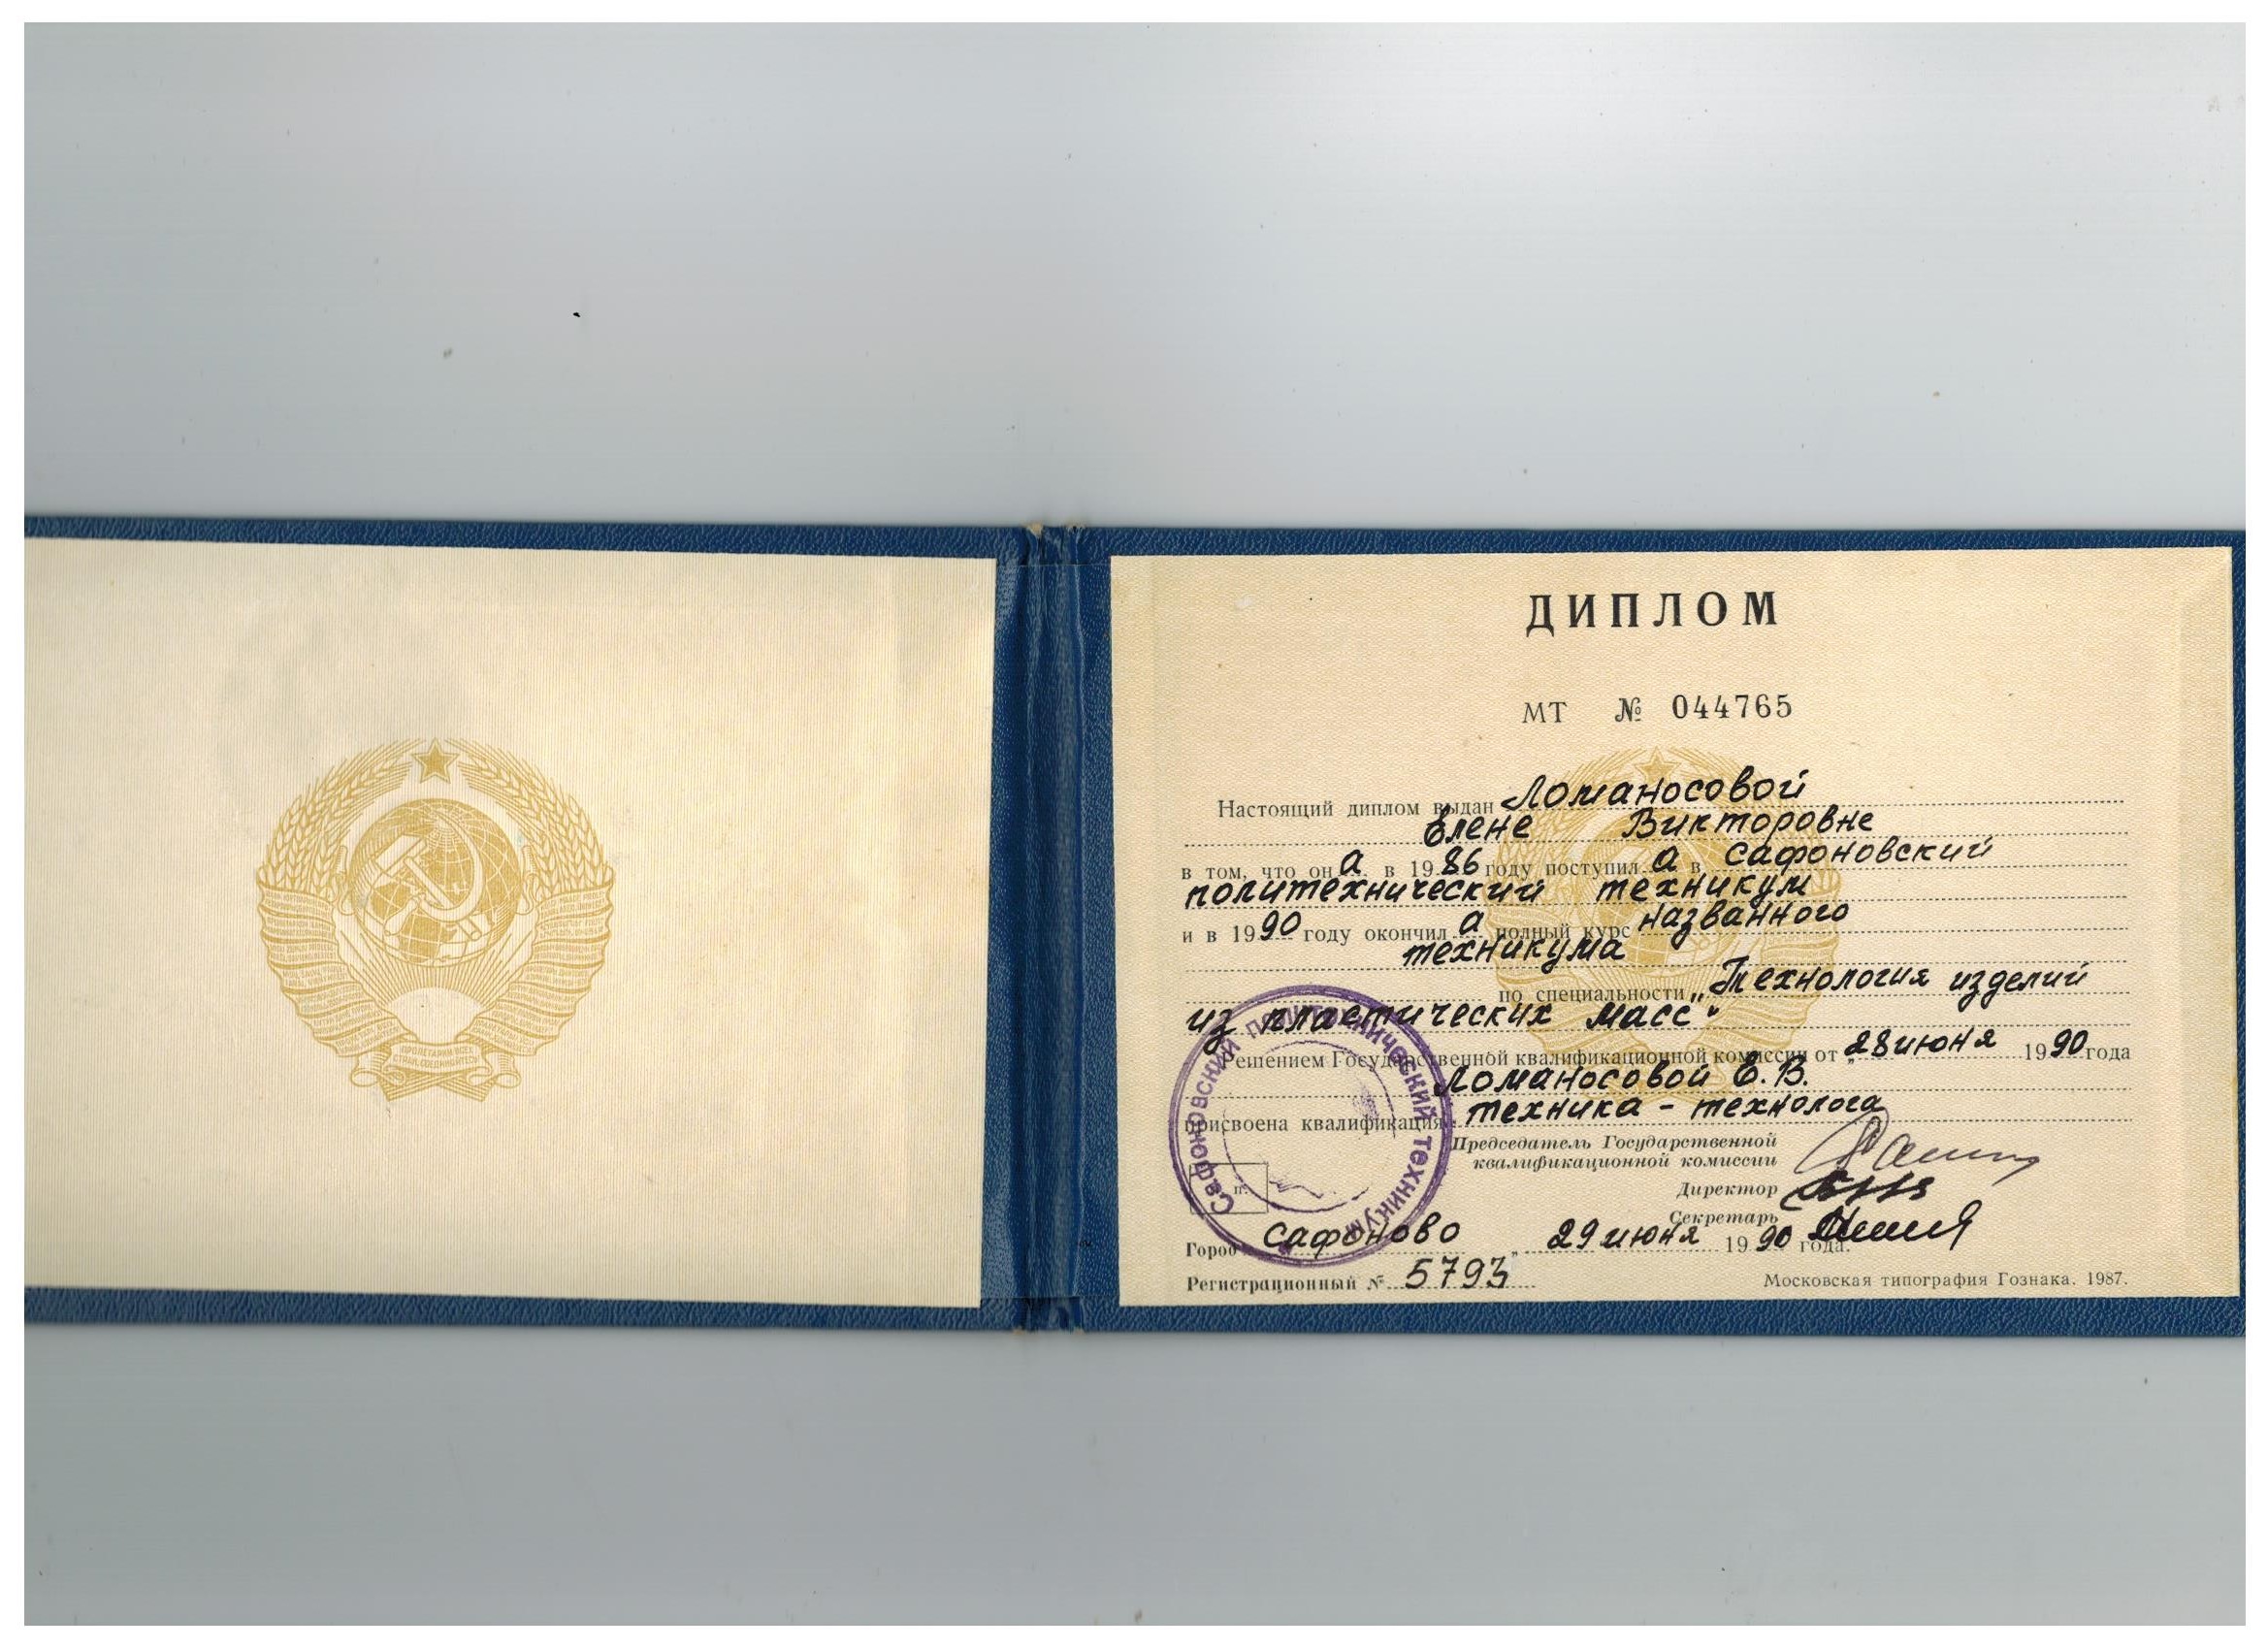 ДИПЛОМ
МТ № 044765
Настоящий диплом выдан Ломаносовой
Елене Викторовне
в том, что она в 1986 году поступила в Сафоновский
политехнический техникум
и в 1990 году окончила полный курс названного
техникума
по специальности „Технология изделий
из пластических масс"
Решением Государственной квалификационной комиссии от 28 июня 1990 года
Ломаносовой Е.В.
присвоена квалификация техника - технолога
Председатель Государственной
квалификационной комиссии
Директор
Секретарь
Город Сафоново „ 29 июня 1990 года.
Регистрационный № 5793
Московская типография Гознака. 1987.
Сафоновский политехнический техникум
ПРОЛЕТАРИИ ВСЕХ
СТРАН, СОЕДИНЯЙТЕСЬ!